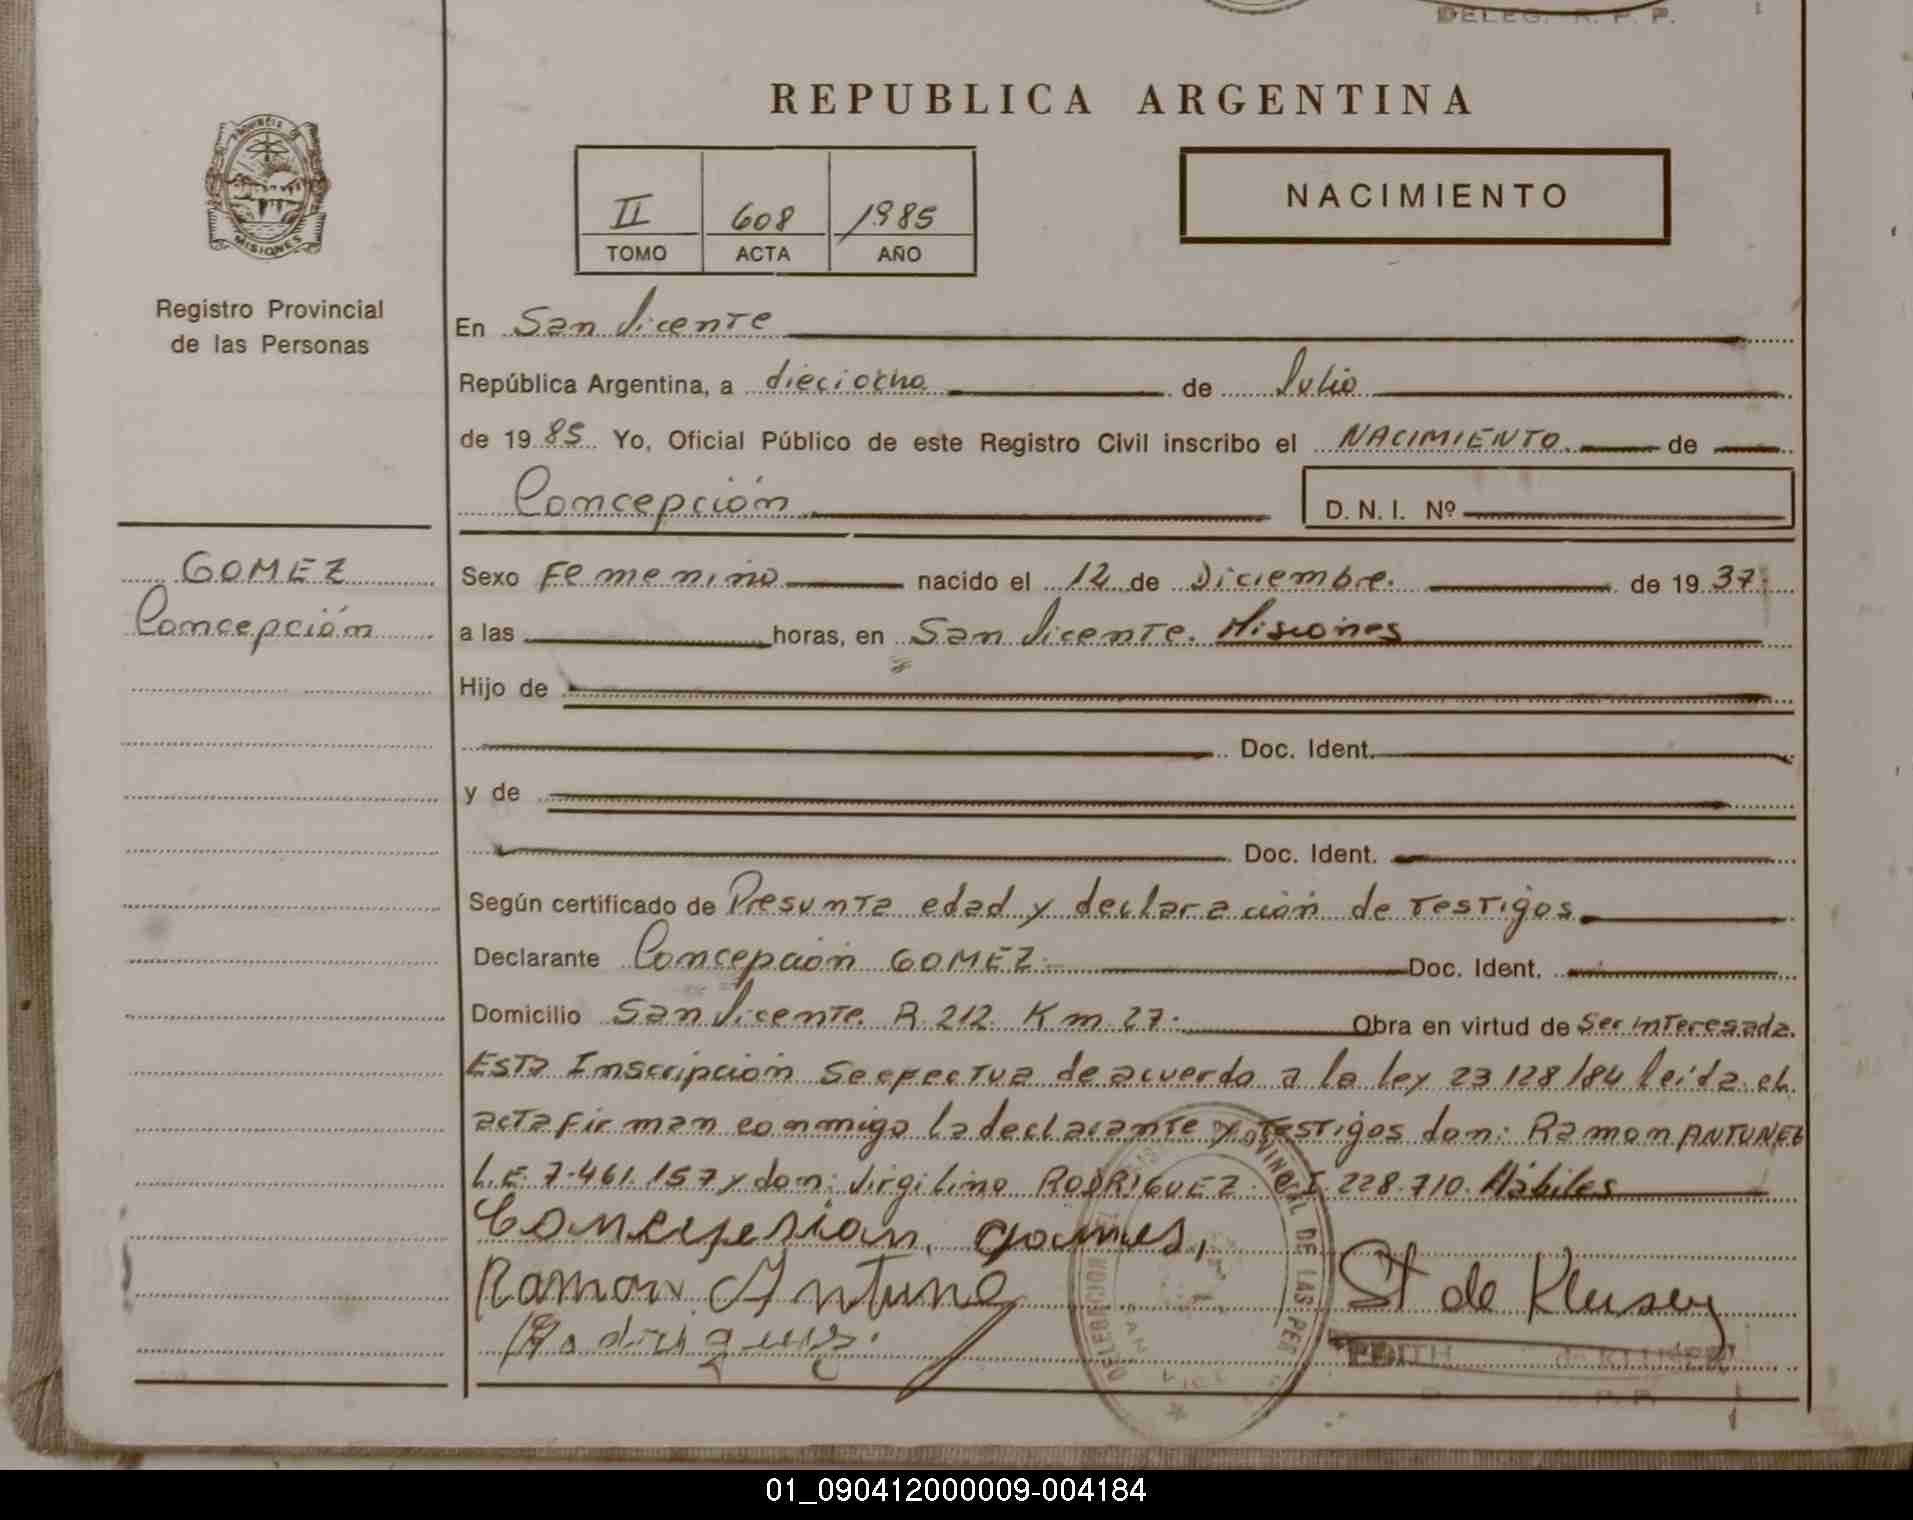 DELEG. R. P. P.
REPUBLICA ARGENTINA
PROVINCIA DE
MISIONES
II 608 1985
TOMO ACTA AÑO
NACIMIENTO
Registro Provincial
de las Personas
En San Vicente
República Argentina, a dieciocho de Julio
de 19 85 Yo, Oficial Público de este Registro Civil inscribo el NACIMIENTO de
Concepción D. N. I. Nº
GOMEZ
Concepción
Sexo Femenino nacido el 12 de Diciembre. de 19 37.
a las horas, en San Vicente. Misiones
Hijo de
Doc. Ident.
y de
Doc. Ident.
Según certificado de Presunta edad y declaración de testigos
Declarante Concepción GOMEZ. Doc. Ident.
Domicilio San Vicente. R. 212. Km. 27. Obra en virtud de Ser interesada.
Esta Inscripción se efectua de acuerdo a la ley 23128/84 leída el
acta firman conmigo la declarante y testigos don: Ramon ANTUNEZ
L.E. 7.461.157 y don: Virgilino RODRIGUEZ. C.I. 228.710. Hábiles
Ramon Antune
St de Kluser
DELEGACION PROVINCIAL DE LAS PER
EDITH de KLUSER
01_090412000009-004184